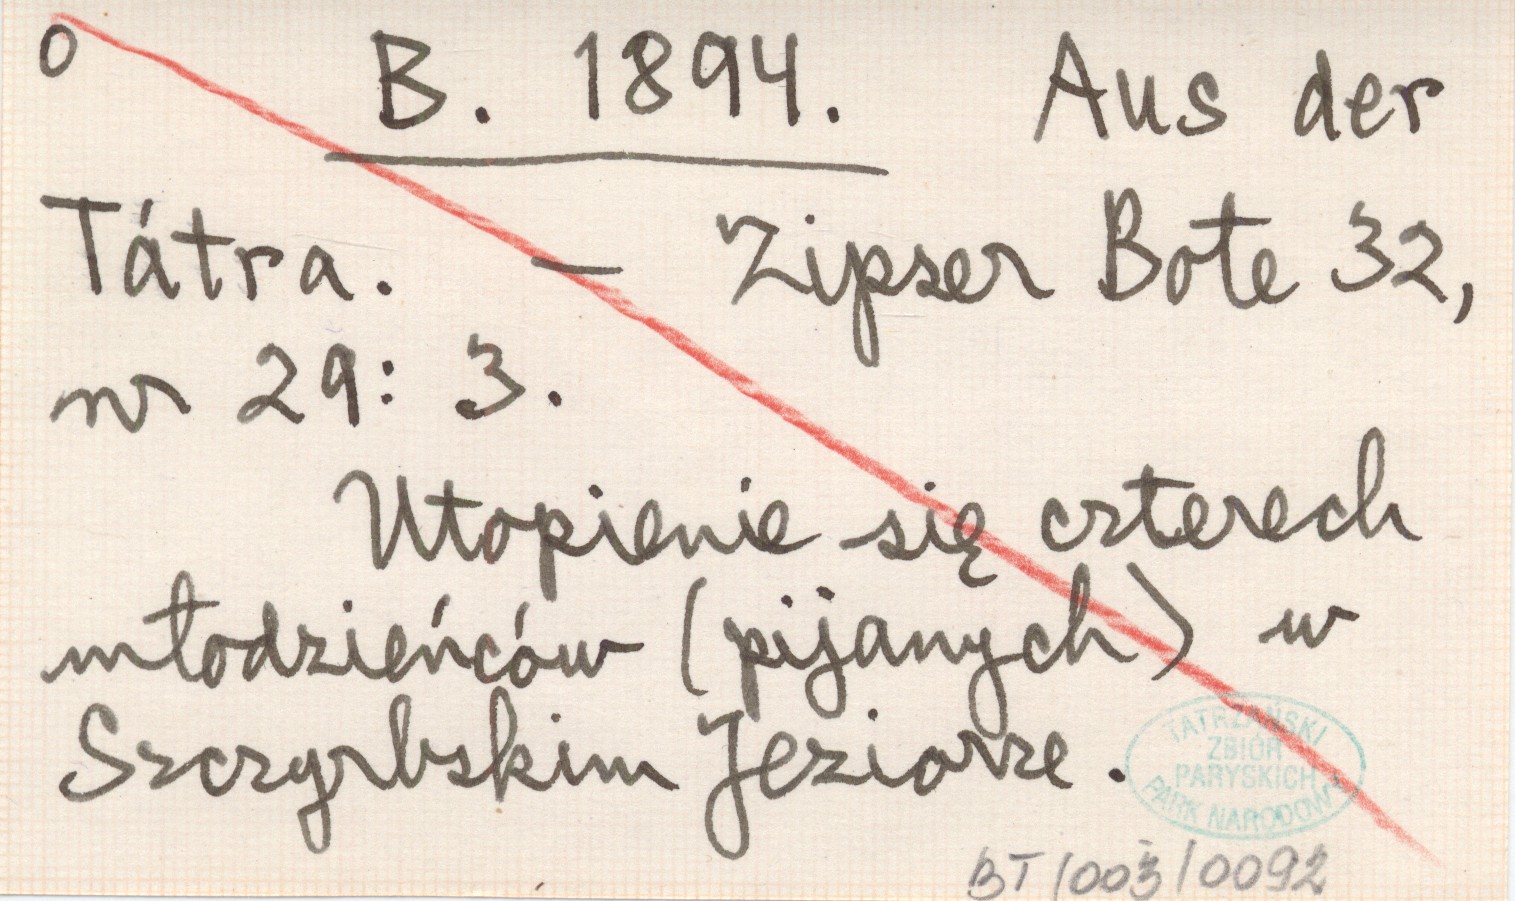 O B. 1894. Aus der
Tátra. — Zipser Bote 32,
nr 29: 3.
Utopienie się czterech
młodzieńców (pijanych) w
Szczyrbskim Jeziorze.
TATRZAŃSKI
ZBIÓR
PARYSKICH
PARK NARODOWY
BT/003/0092